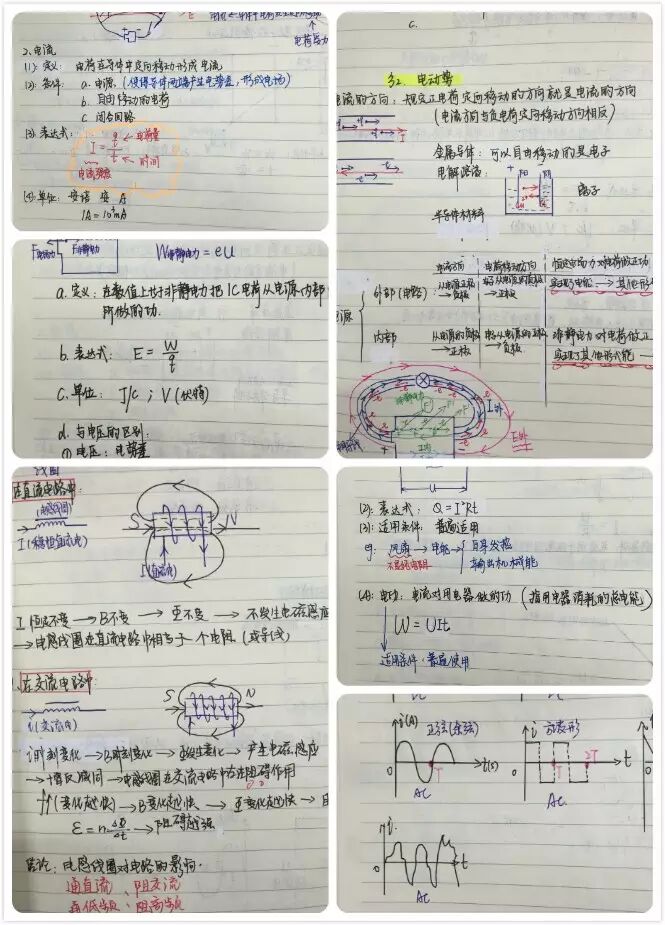 2、电流
(1): 定义: 电荷在导体中定向移动形成电流
(2): 条件: a. 电源 (使得导体两端产生电势差,形成电场)
b. 自由移动的电荷
c. 闭合回路
(3): 表达式:
I = q/t
电荷量
时间
电流强度
(4): 单位: 安培 安 A
1A = 10³mA
F非静电力
W非静电力 = eU
a. 定义: 在数值上等于非静电力把1C电荷从电源内部
所做的功.
b. 表达式: E = W/q
c. 单位: J/C ; V (伏特)
d. 与电压的区别:
① 电压: 电势差
在直流电路中:
I (稳恒直流电)
S N
I(直流电)
I 恒定不变 → B不变 → Φ不变 → 不发生电磁感应
→ 电感线圈在直流电路中相当于一个电阻 (或导线)
在交流电路中:
i (交流电)
S N
i时刻变化 → B时刻变化 → Φ发生变化 → 产生电磁感应
→ 电感线圈在交流电路中存在阻碍作用
(变化越快) → B变化越快 → Φ变化越快
ε = n ΔΦ/Δt → 阻碍越强
结论: 电感线圈对电路的影响.
通直流、阻交流
通低频、阻高频
C.
§2. 电动势
电流的方向: 规定正电荷定向移动的方向就是电流的方向
(电流方向与负电荷定向移动方向相反)
金属导体: 可以自由移动的是电子
电解溶液:
离子
半导体材料
电流方向
电荷移动方向
外部 (电路)
内部
非静电力对电荷做正
I外
I内
E外
U
(2): 表达式: Q = I²Rt
(3): 适用条件: 普遍适用
eg: 风扇 → 电能 → 自身发热
输出机械能
(4): 电功: 电流对用电器做的功 (指用电器消耗的总电能)
W = UIt
适用条件: 普遍使用
i(A) 正弦(余弦)
0 T t(s)
AC
i 方波形
0 T 2T t
AC
i
0 t
AC